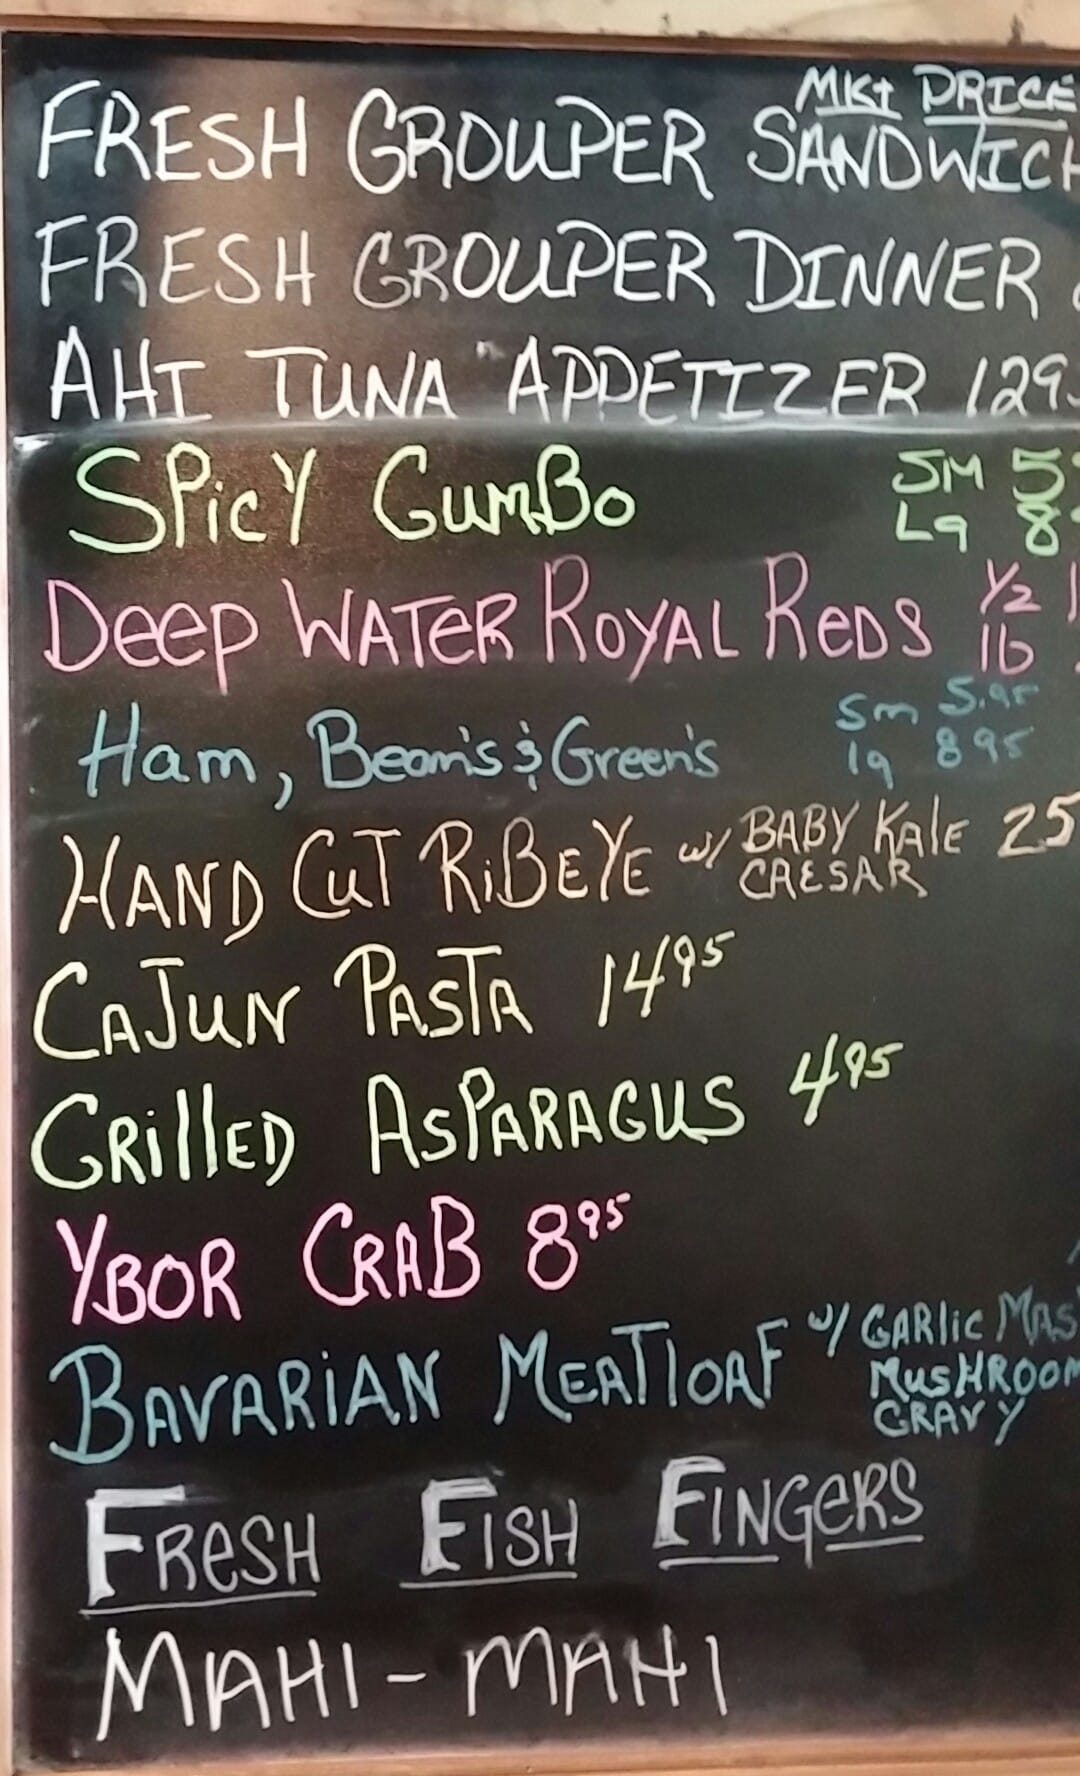 MKt PRICE
FRESH GROUPER SANDWICH
FRESH GROUPER DINNER
AHI TUNA APPETIZER 129
SPicY GumBo SM 5
Lg 8
DeeP WATeR ROYAL ReDS 1/2
lb
Ham, Bean's & Green's Sm 5.95
lg 895
HAND CuT RiBEYE w/ BABY KAlE 25
CAESAR
CAJUN PASTA 1495
GRillED ASPARAGUS 495
YBOR CRAB 895
BAVARiAN MEATloAF w/ GARlic MAS
MusHROOM
GRAVY
FReSH FISH FINGeRS
MAHI-MAHI